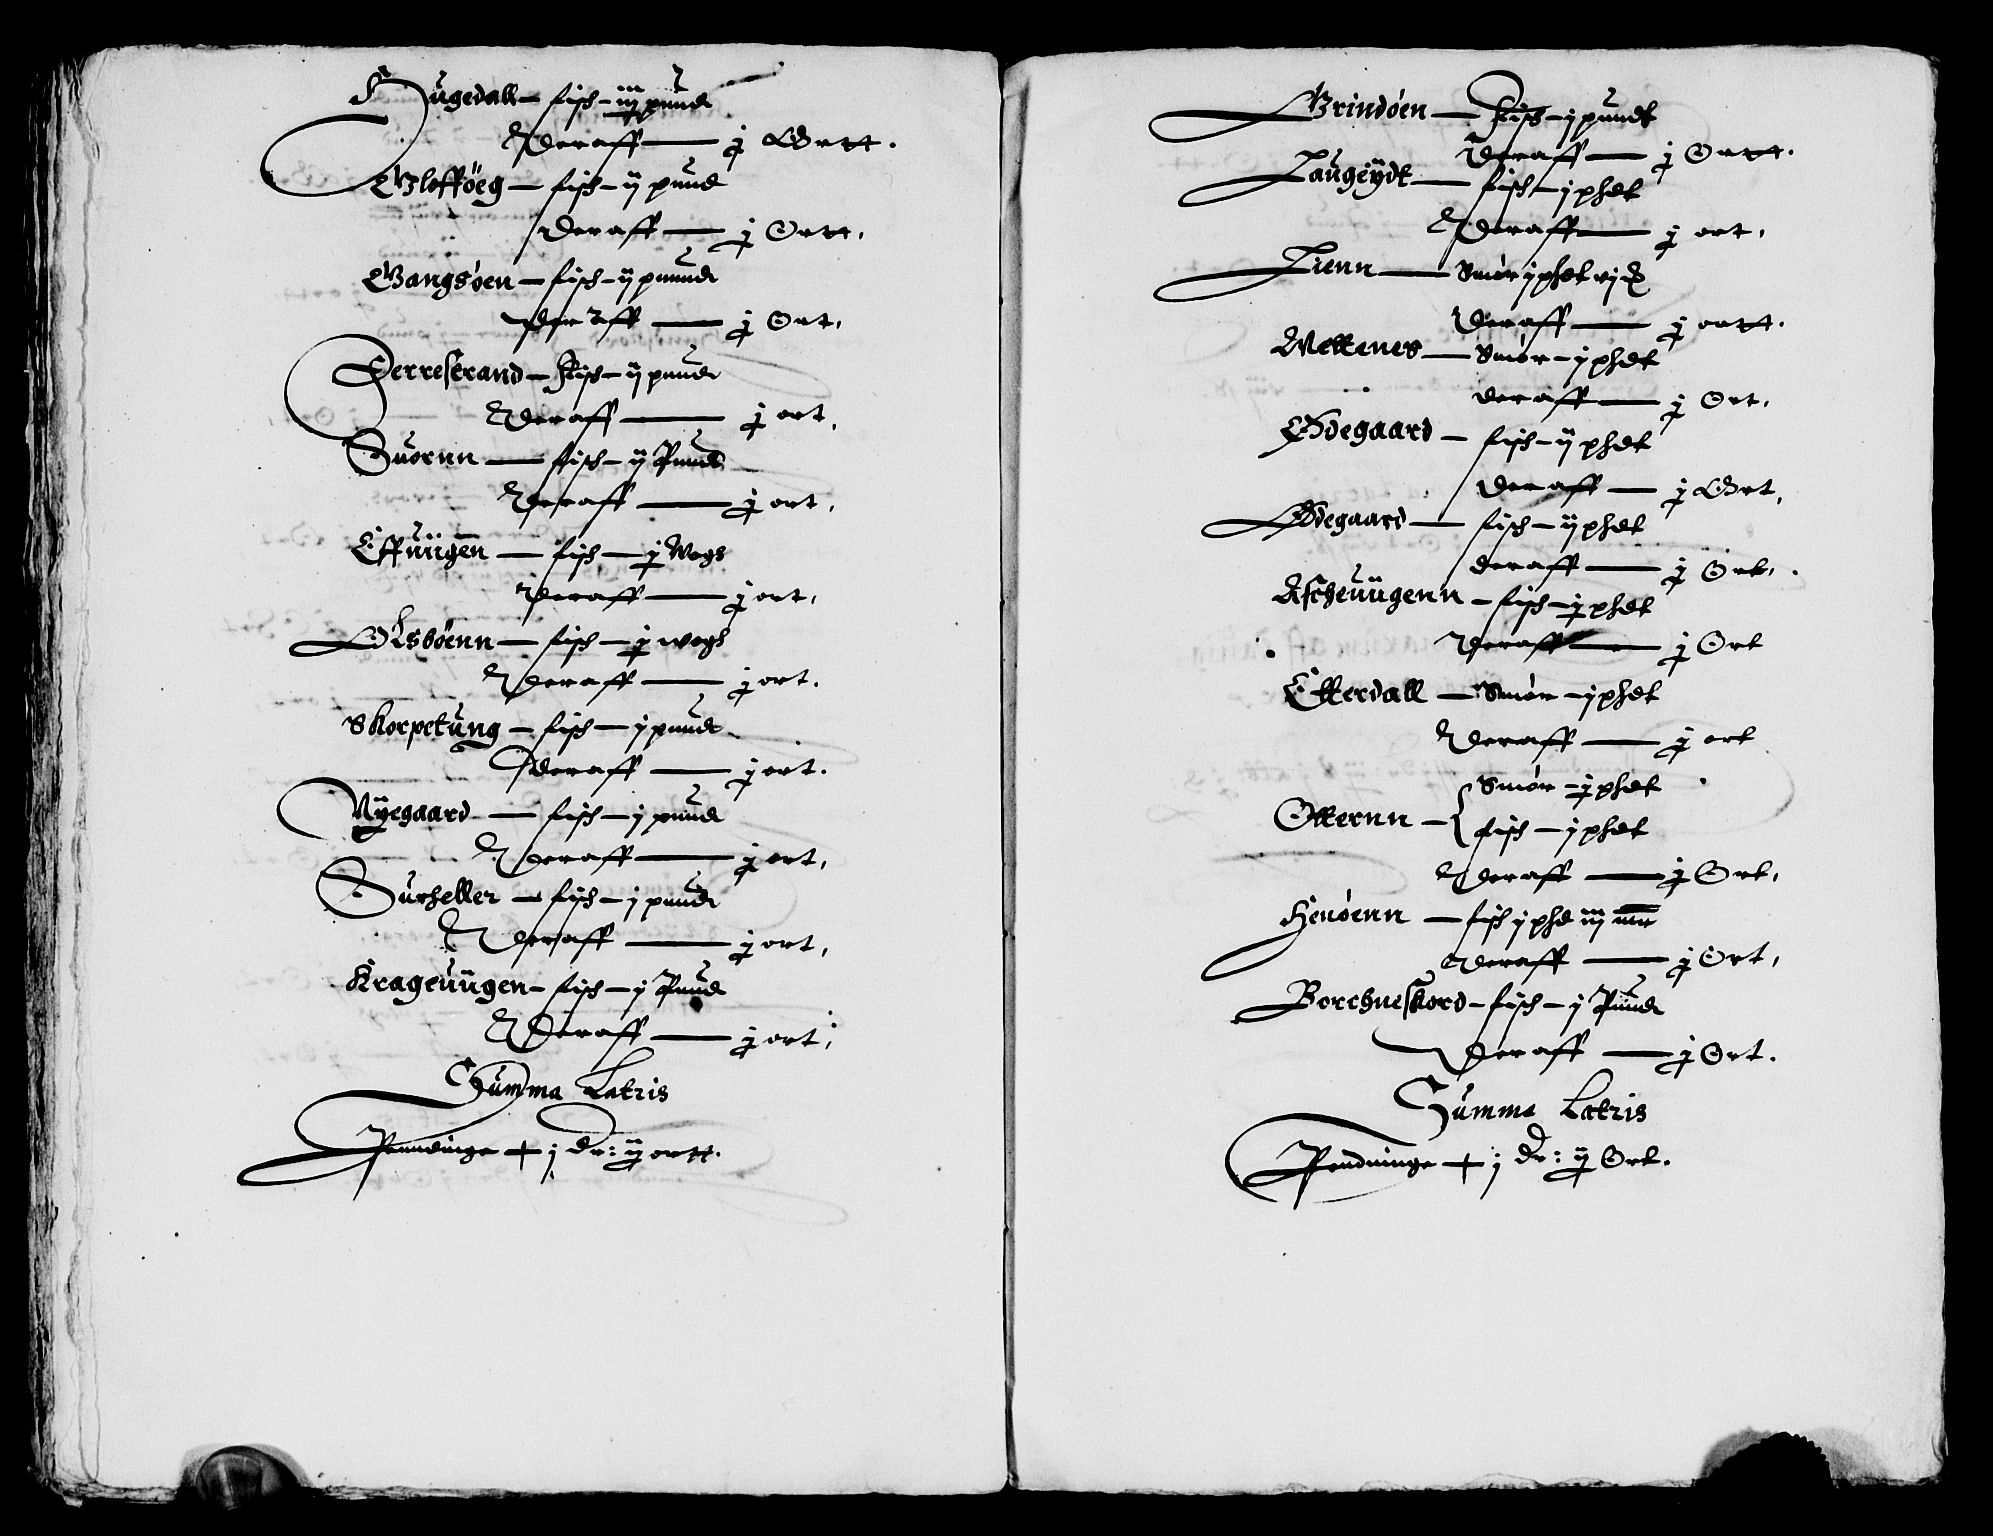 Hugedall – fisch – iij pund
Deraff — j Ortt.
Glofföeg – fisch – ij pund
Deraff — j Ortt.
Gangsöen – fisch – ij pundt
Deraff — j Ort.
Herrestrand – Fisch – ij pund
Deraff — j ort.
Suornn — fisch – ij Pund
Deraff — j ort.
Effuügen — fisch — j Wogs
Deraff — j ort.
Olsböenn — fisch — j wogs
Deraff — j ort.
Skorpetung – fisch – j pundt
Deraff — j ort.
Nÿegaard — fisch – j pund
Deraff — j ort.
Surseller – fisch – j pund
Deraff — j ort.
Krageuügen – fisch – j Pund
Deraff — j ort.
Summa Latris
Penndinge + j dr: ij ortt.
Grindöen — Fisch – j pundt
Deraff — j Ortt.
Laugeÿdt — fisch – j phdt
Deraff — j ort.
Lienn — Smör j phdt vj
Deraff — j ortt.
Vettenes — Smör – j phdt
deraff — j Ort.
Ödegaard — fisch – ij phdt
Deraff — j Ort.
Ödegaard — fisch – ij phdt
deraff — j Ort.
Ascheuügenn – fisch – j phdt
Deraff — j Ort
Etterdall — Smör – j phdt
Deraff — j ort
Smör – j phdt
Otternn – { fisch – j phdt
Deraff — j Ort.
Heuöenn — fisch j phd iij
Deraff — j Ort.
Borchneskord – fisch – j Pund
Deraff — j Ort.
Summa Latris
Pendninge + j dr: ij Ort.